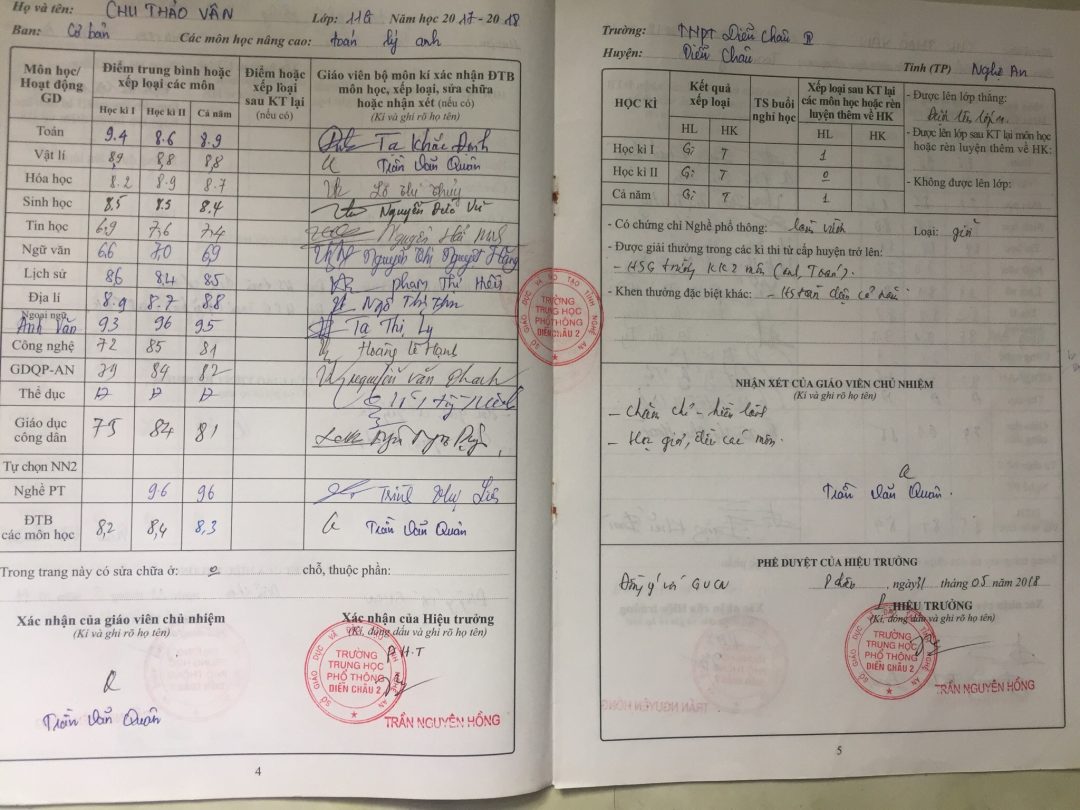 Họ và tên: CHU THẢO VÂN Lớp: 11G Năm học 2017 - 2018
Ban: Cơ bản Các môn học nâng cao: toán lý anh
Môn học/ Hoạt động GD
Điểm trung bình hoặc xếp loại các môn
Học kì I Học kì II Cả năm
Điểm hoặc xếp loại sau KT lại (nếu có)
Giáo viên bộ môn kí xác nhận ĐTB môn học, xếp loại, sửa chữa hoặc nhận xét (nếu có)
(Kí và ghi rõ họ tên)
Toán 9.4 8.6 8.9 Tạ Khắc Định
Vật lí 8,9 8,8 8,8 Trần Văn Quân
Hóa học 8.2 8.9 8.7
Sinh học 8.5 8.5 8.4 Nguyễn Đức Vũ
Tin học 6,9 7,6 7,4 Nguyễn Hải
Ngữ văn 6.6 7.0 6,9 Nguyễn Thị Nguyệt Hằng
Lịch sử 8,6 8.4 8.5 Phạm Thị Hiền
Địa lí 8.9 8.7 8.8 Ngô Thị
Ngoại ngữ Anh Văn 93 96 95 Tạ Thị Ly
Công nghệ 72 85 81 Hoàng Lê Hạnh
GDQP-AN 79 84 82 Nguyễn Văn
Thể dục Đ Đ Đ
Giáo dục công dân 75 84 81
Tự chọn NN2
Nghề PT 9.6 96 Trịnh
ĐTB các môn học 8,2 8,4 8,3 Trần Văn Quân
Trong trang này có sửa chữa ở: 0 chỗ, thuộc phần:
Xác nhận của giáo viên chủ nhiệm
(Kí và ghi rõ họ tên)
Trần Văn Quân
Xác nhận của Hiệu trưởng
(Kí, đóng dấu và ghi rõ họ tên)
P.H.T
SỞ GIÁO DỤC VÀ ĐÀO TẠO TỈNH NGHỆ AN
TRƯỜNG
TRUNG HỌC
PHỔ THÔNG
DIỄN CHÂU 2
TRẦN NGUYÊN HỒNG
4
Trường: THPT Diễn Châu II
Huyện: Diễn Châu Tỉnh (TP) Nghệ An
HỌC KÌ
Kết quả xếp loại
HL HK
TS buổi nghỉ học
Xếp loại sau KT lại các môn học hoặc rèn luyện thêm về HK
HL HK
Học kì I Gi T 1
Học kì II Gi T 0
Cả năm Gi T 1
- Được lên lớp thẳng:
- Được lên lớp sau KT lại môn học hoặc rèn luyện thêm về HK:
- Không được lên lớp:
- Có chứng chỉ Nghề phổ thông: làm vườn Loại: giỏi
- Được giải thưởng trong các kì thi từ cấp huyện trở lên:
- HSG trường KK 2 môn (Anh Toán).
- Khen thưởng đặc biệt khác:
SỞ GIÁO DỤC VÀ ĐÀO TẠO TỈNH NGHỆ AN
TRƯỜNG
TRUNG HỌC
PHỔ THÔNG
DIỄN CHÂU 2
NHẬN XÉT CỦA GIÁO VIÊN CHỦ NHIỆM
(Kí và ghi rõ họ tên)
- Chăm chỉ - hiền lành
- Học giỏi, đều các môn.
Trần Văn Quân.
PHÊ DUYỆT CỦA HIỆU TRƯỞNG
Đồng ý với GVCN
Diễn, ngày 31 tháng 05 năm 2018
HIỆU TRƯỞNG
(Kí, đóng dấu và ghi rõ họ tên)
SỞ GIÁO DỤC VÀ ĐÀO TẠO TỈNH NGHỆ AN
TRƯỜNG
TRUNG HỌC
PHỔ THÔNG
DIỄN CHÂU 2
TRẦN NGUYÊN HỒNG
5